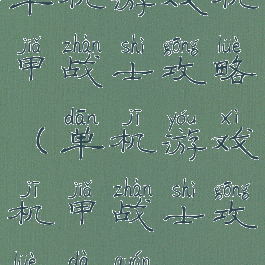 单机游戏机
jiǎ zhàn shì gōng lüè
甲战士攻略
dān jī yóu xì
(单机游戏
jī jiǎ zhàn shì gōng
机甲战士攻
lüè dà quán